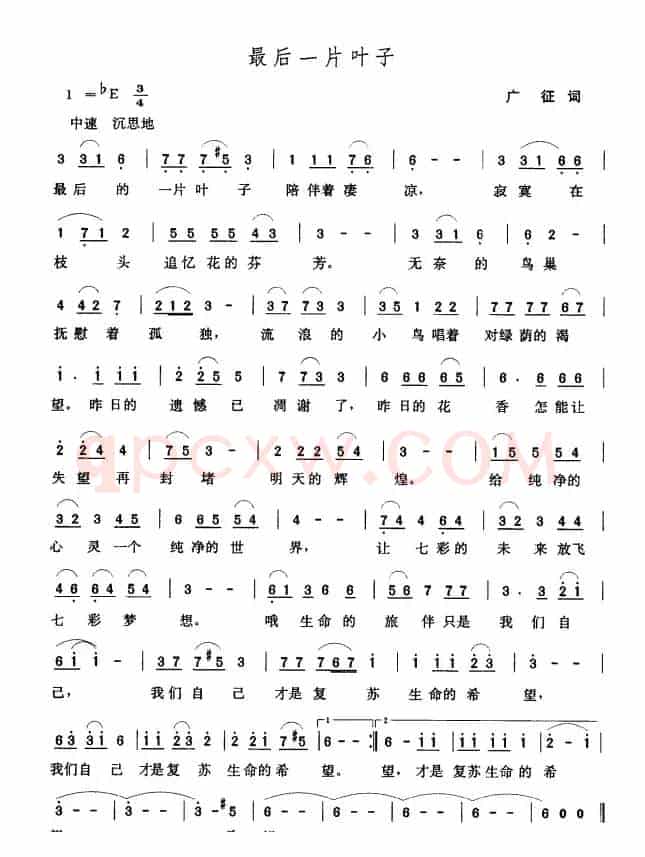 最后一片叶子
1 = ♭E 3/4
广 征 词
中速 沉思地
3 3 1 6 | 7 7 7 #5 3 | 1 1 1 7 6 | 6 - - | 3 3 3 1 6 6 |
最后 的 一片 叶 子 陪 伴着 凄 凉, 寂 寞 在
1 7 1 2 | 5 5 5 5 4 3 | 3 - - | 3 - 3 | 3 3 1 6 |
枝 头 追忆 花的 芬 芳。 无 奈 的 鸟巢
4 4 2 7 | 2 1 2 2 | 3 - - | 3 7 7 3 3 | 3 5 1 2 2 | 7 7 7 6 7 |
抚慰 着 孤 独, 流 浪 的 小 鸟 唱着 对绿荫的 渴
1 . 1 1 1 1 | 2 2 5 5 | 2 7 3 3 | 6 6 6 6 5 | 6 . 6 6 6 |
望。昨日的 遗 憾 已 凋 谢 了, 昨日的 花 香 怎能让
2 2 4 4 | 7 5 3 | 2 2 2 5 4 | 3 - - | 1 5 5 5 4 |
失望 再 封 堵 明天的 辉 煌。 给 纯净的
3 2 3 4 5 | 6 6 5 5 4 | 3 - - | 7 4 6 4 | 3 2 3 2 4 |
心 灵 一个 纯净的 世 界, 让 七 彩的 未 来 放飞
4 6 6 4 2 | 3 - - | 6 1 3 6 6 | 5 6 7 7 7 | 3 . 3 2 1 |
七 彩 梦 想。 哦 生命的 旅 伴 只是 我 们 自
6 1 1 - | 3 7 7 #5 3 | 7 7 7 6 7 1 | 1 1 1 2 3 | 3 - - |
己, 我们 自 己 才是 复 苏 生命的 希 望,
6 3 3 1 | 1 1 2 3 | 2 1 7 #5 | 6 - - :| 6 - 1 1 | 1 1 1 1 | 2 - 1 |
我们自己 才是复苏 生命的希 望。 望,才是 复苏生命的希
3 - - | 3 - - | 3 - - | 6 - - | 6 - - | 6 - - | 6 0 0 ‖
qpcxw.COM